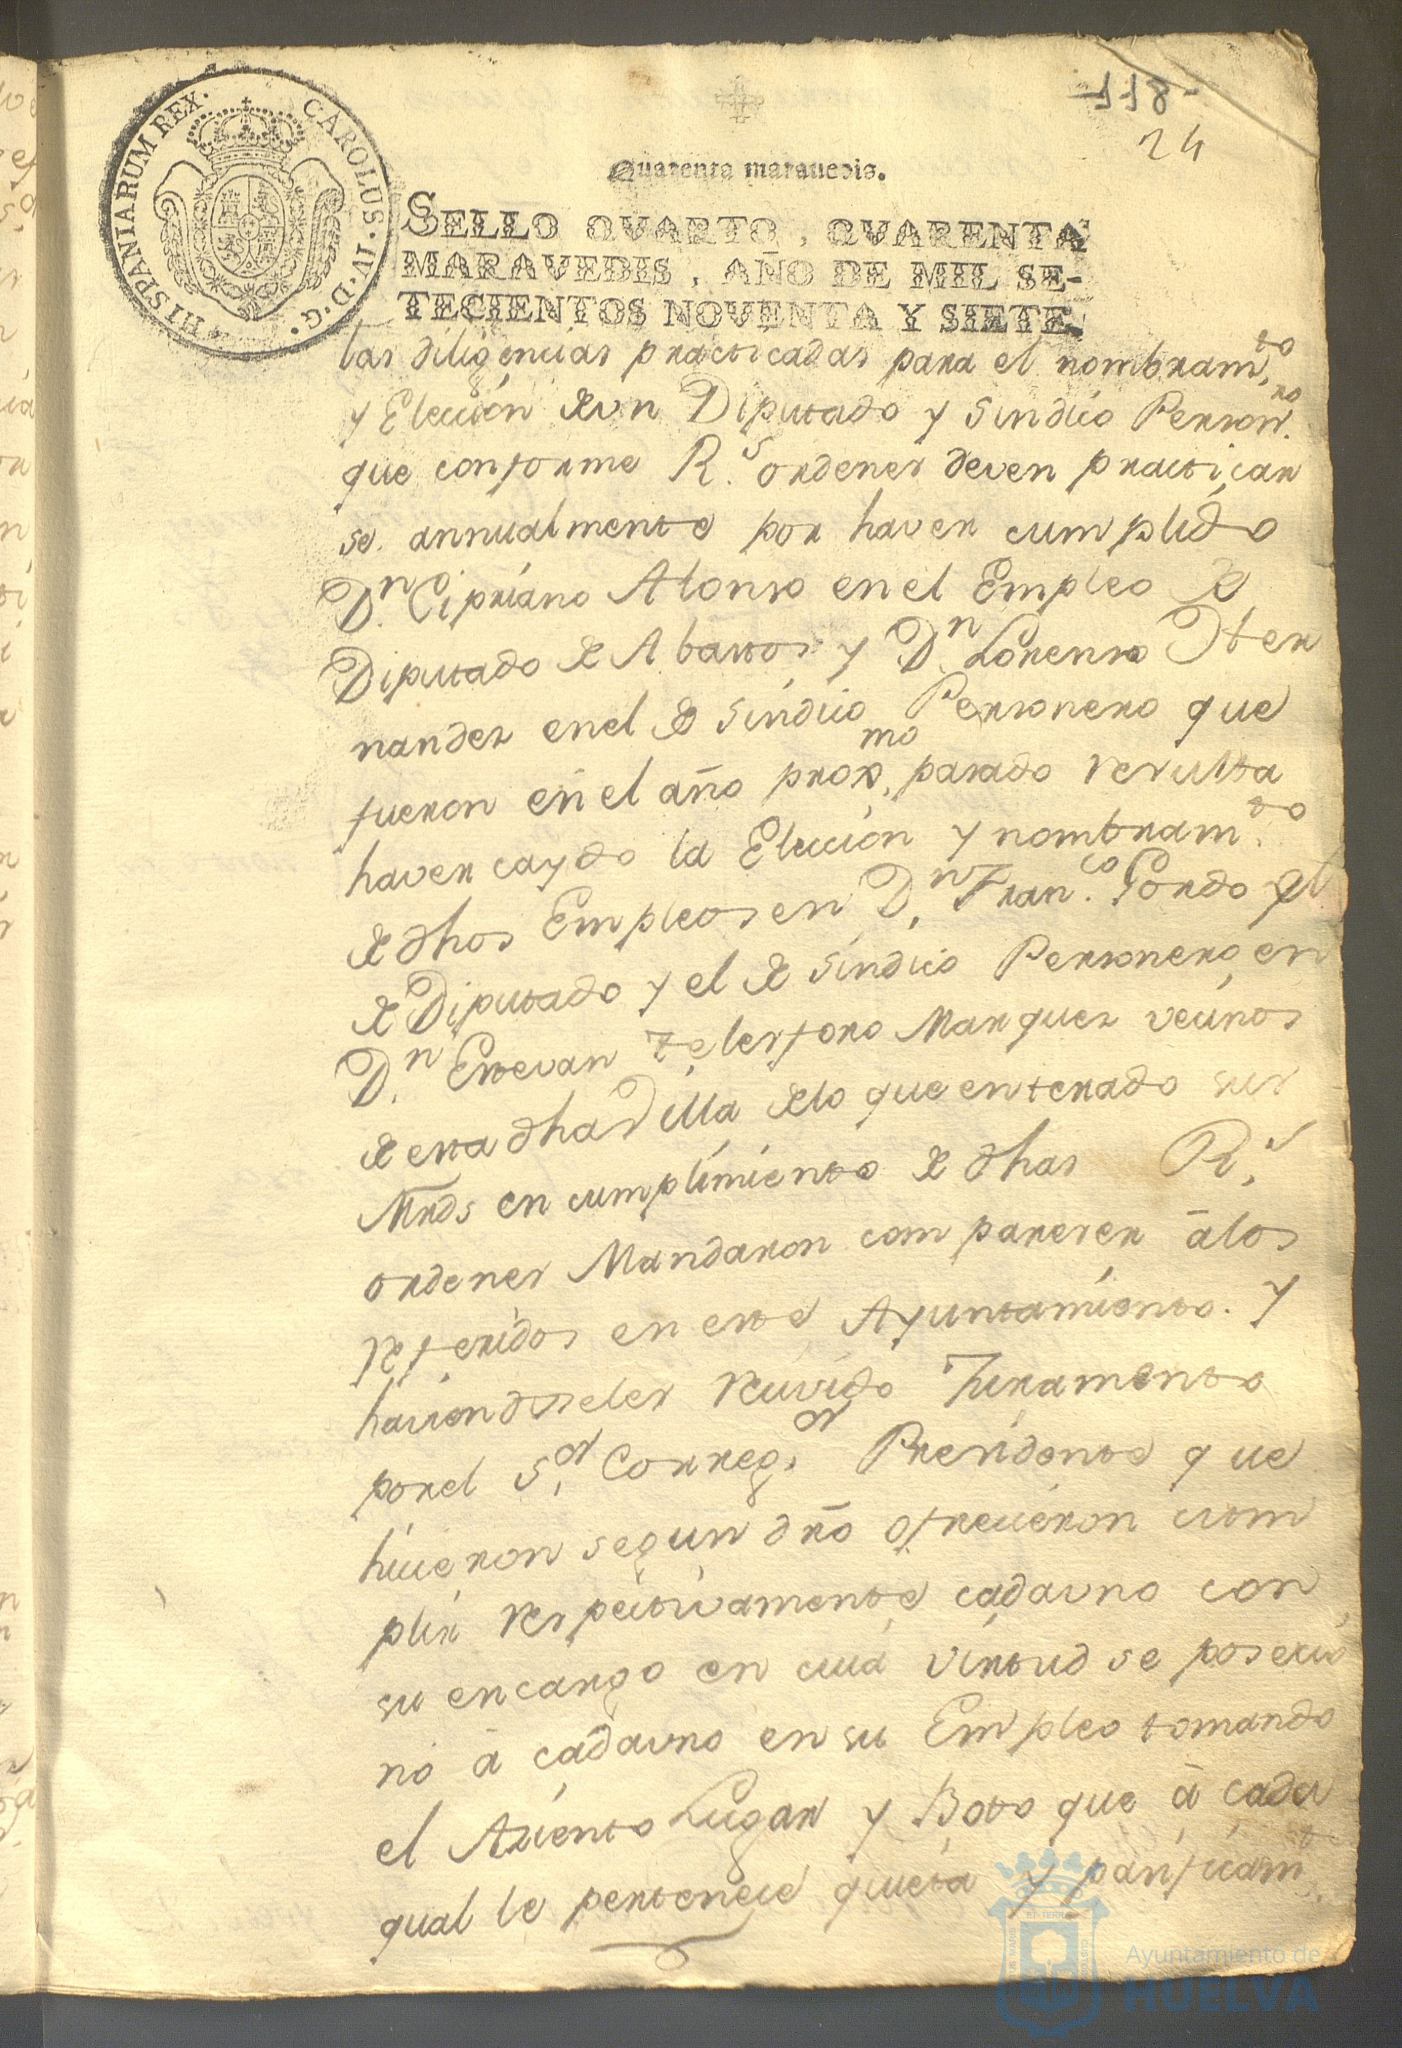 HISPANIARUM REX. CAROLUS. IV. D. G.
118
24
Quarenta maravedis.
SELLO QVARTO, QVARENTA
MARAVEDIS, AÑO DE MIL SE-
TECIENTOS NOVENTA Y SIETE.
las diligencias practicadas para el nombram.to
y Elección de un Diputado y Sindico Person.ro
que conforme R.s ordenes deven practicar
se annualmente por haver cumplido
D.n Cipriano Alonso en el Empleo de
Diputado de Abastos y D.n Lorenso Her
nandez en el de Sindico Personero que
fueron en el año prox.mo pasado resulta
haver caydo la Elección y nombram.to
de dhos Empleos en D.n Fran.co Gordo el
de Diputado y el de Sindico Personero en
D.n Estevan Telesforo Marquez vecinos
de esta dha Villa de lo que enterado sus
Mrds en cumplimiento de dhas R.s
ordenes Mandaron compareser á los
referidos en este Ayuntamiento. y
haviendoseles recivido Juramento
por el S.or Correg.or Presidente que
hicieron segun dro ofrecieron cum
plir respectivamente cada uno con
su encargo en cuia virtud se poseció
nó á cada uno en su Empleo tomando
el Aziento Lugar y Boto que á cada
qual le pertenece quieta y pasificam.te
Ayuntamiento de
HUELVA